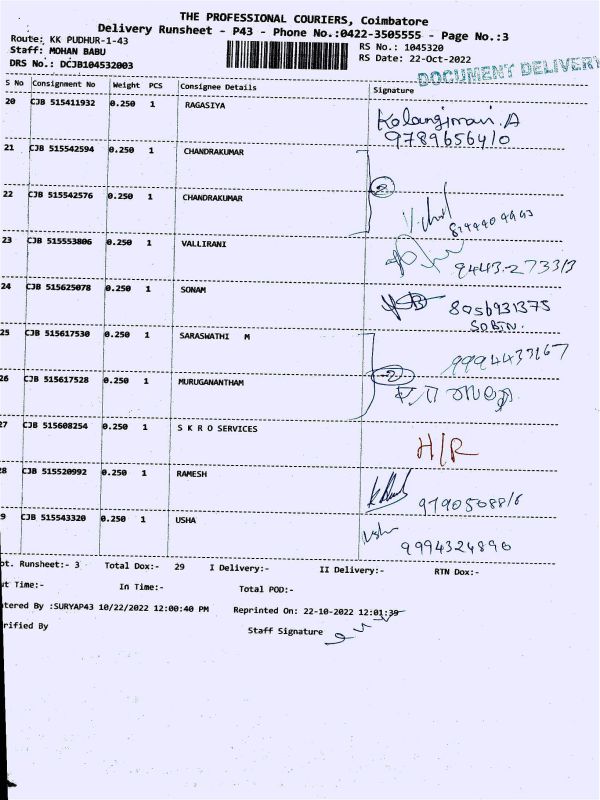 THE PROFESSIONAL COURIERS, Coimbatore
Delivery Runsheet - P43 - Phone No.:0422-3505555 - Page No.:3
Route: KK PUDHUR-1-43
RS No.: 1045320
Staff: MOHAN BABU
RS Date: 22-Oct-2022
DRS No.: DCJB104532003
DOCUMENT DELIVERY
S No Consignment No Weight PCS Consignee Details Signature
20 CJB 515411932 0.250 1 RAGASIYA
21 CJB 515542594 0.250 1 CHANDRAKUMAR
22 CJB 515542576 0.250 1 CHANDRAKUMAR
23 CJB 515553806 0.250 1 VALLIRANI
9443273313
24 CJB 515625078 0.250 1 SONAM
8056931375
SOBIN.
25 CJB 515617530 0.250 1 SARASWATHI M
26 CJB 515617528 0.250 1 MURUGANANTHAM
27 CJB 515608254 0.250 1 S K R O SERVICES
H/R
28 CJB 515520992 0.250 1 RAMESH
9790508816
29 CJB 515543320 0.250 1 USHA
Usha
9994324890
ot. Runsheet:- 3 Total Dox:- 29 I Delivery:- II Delivery:- RTN Dox:-
ut Time:- In Time:- Total POD:-
ntered By :SURYAP43 10/22/2022 12:00:40 PM Reprinted On: 22-10-2022 12:01:39
rified By Staff Signature